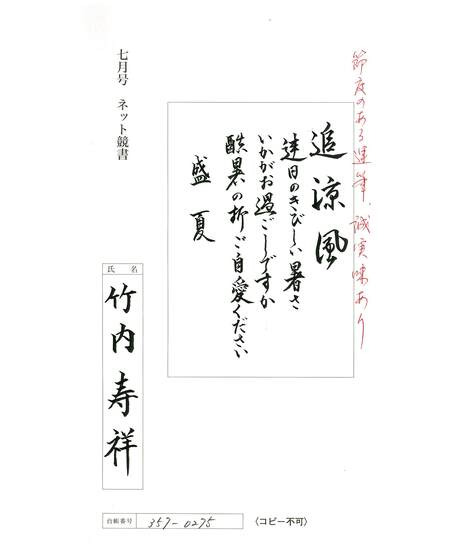 節度のある運筆、誠実味あり
追涼風
連日のきびしい暑さ
いかがお過ごしですか
酷暑の折ご自愛ください
盛夏
七月号 ネット競書
氏名
竹内寿祥
台帳番号
357-0275
〈コピー不可〉